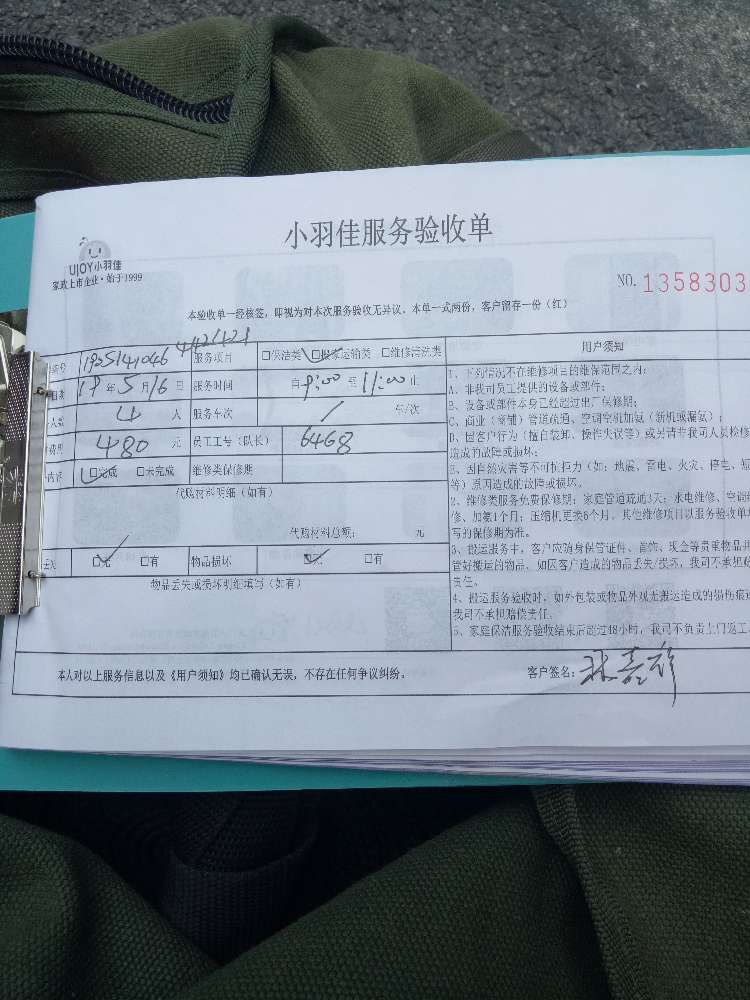 小羽佳服务验收单
UJOY小羽佳
家政上市企业·始于1999
NO. 1358303
本验收单一经核签，即视为对本次服务验收无异议。本单一式两份，客户留存一份（红）
编号 1905141046 服务项目 □保洁类 □搬家运输类 □维修清洗类
日期 19年5月16日 服务时间 自9:00至11:00止
人数 4 人 服务车次 / 车/次
费用 480 元 员工工号（队长） 6468
内容 □完成 □未完成 维修类保修期
代购材料明细（如有）
代购材料总额： 元
丢失 □无 □有 物品损坏 □无 □有
物品丢失或损坏明细填写（如有）
用户须知
1、下列情况不在维修项目的维保范围之内：
A、非我司员工提供的设备或部件；
B、设备或部件本身已经超过出厂保修期；
C、商业（商铺）管道疏通、空调空机加氨（新机或漏氨）；
D、因客户行为（擅自装卸、操作失误等）或另请非我司人员检修
造成的故障或损坏；
E、因自然灾害等不可抗拒力（如：地震、雷电、火灾、停电、短
等）原因造成的故障或损坏。
2、维修类服务免费保修期：家庭管道疏通3天；水电维修、空调维
修、加氨1个月；压缩机更换6个月。其他维修项目以服务验收单填
写的保修期为准。
3、搬运服务中，客户应随身保管证件、首饰、现金等贵重物品并
管好搬运的物品。如因客户造成的物品丢失/损坏，我司不承担赔
责任。
4、搬运服务验收时，如外包装或物品外观无搬运造成的损伤痕迹
我司不承担赔偿责任。
5、家庭保洁服务验收结束后超过48小时，我司不负责上门返工。
本人对以上服务信息以及《用户须知》均已确认无误，不存在任何争议纠纷。
客户签名：